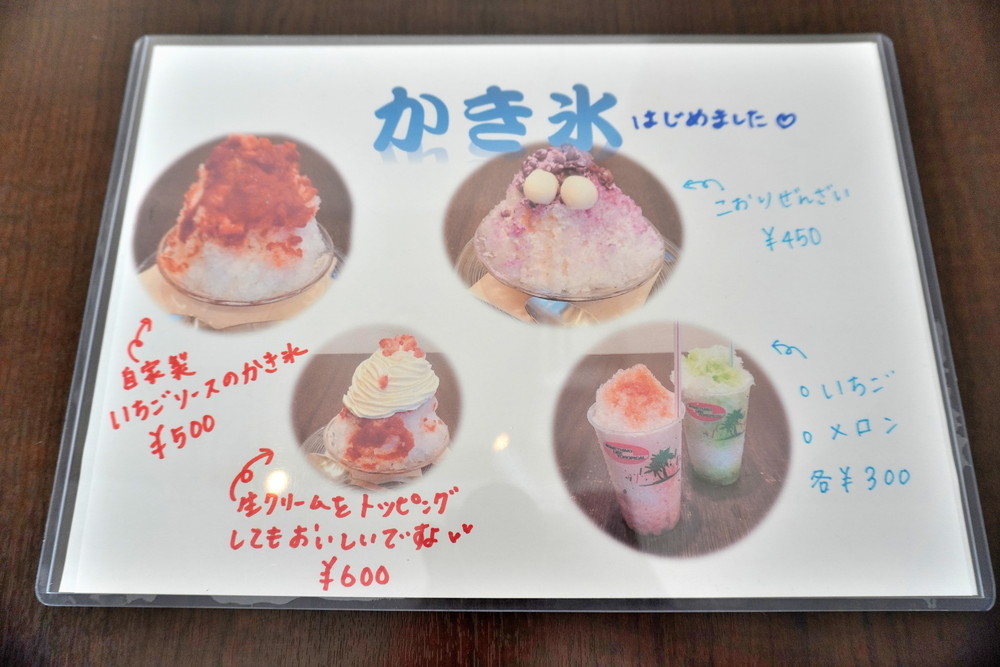 かき氷 はじめました♡
こおりぜんざい
¥450
自家製
いちごソースのかき氷
¥500
生クリームをトッピング
してもおいしいですよ♥♥
¥600
○いちご
○メロン
各¥300